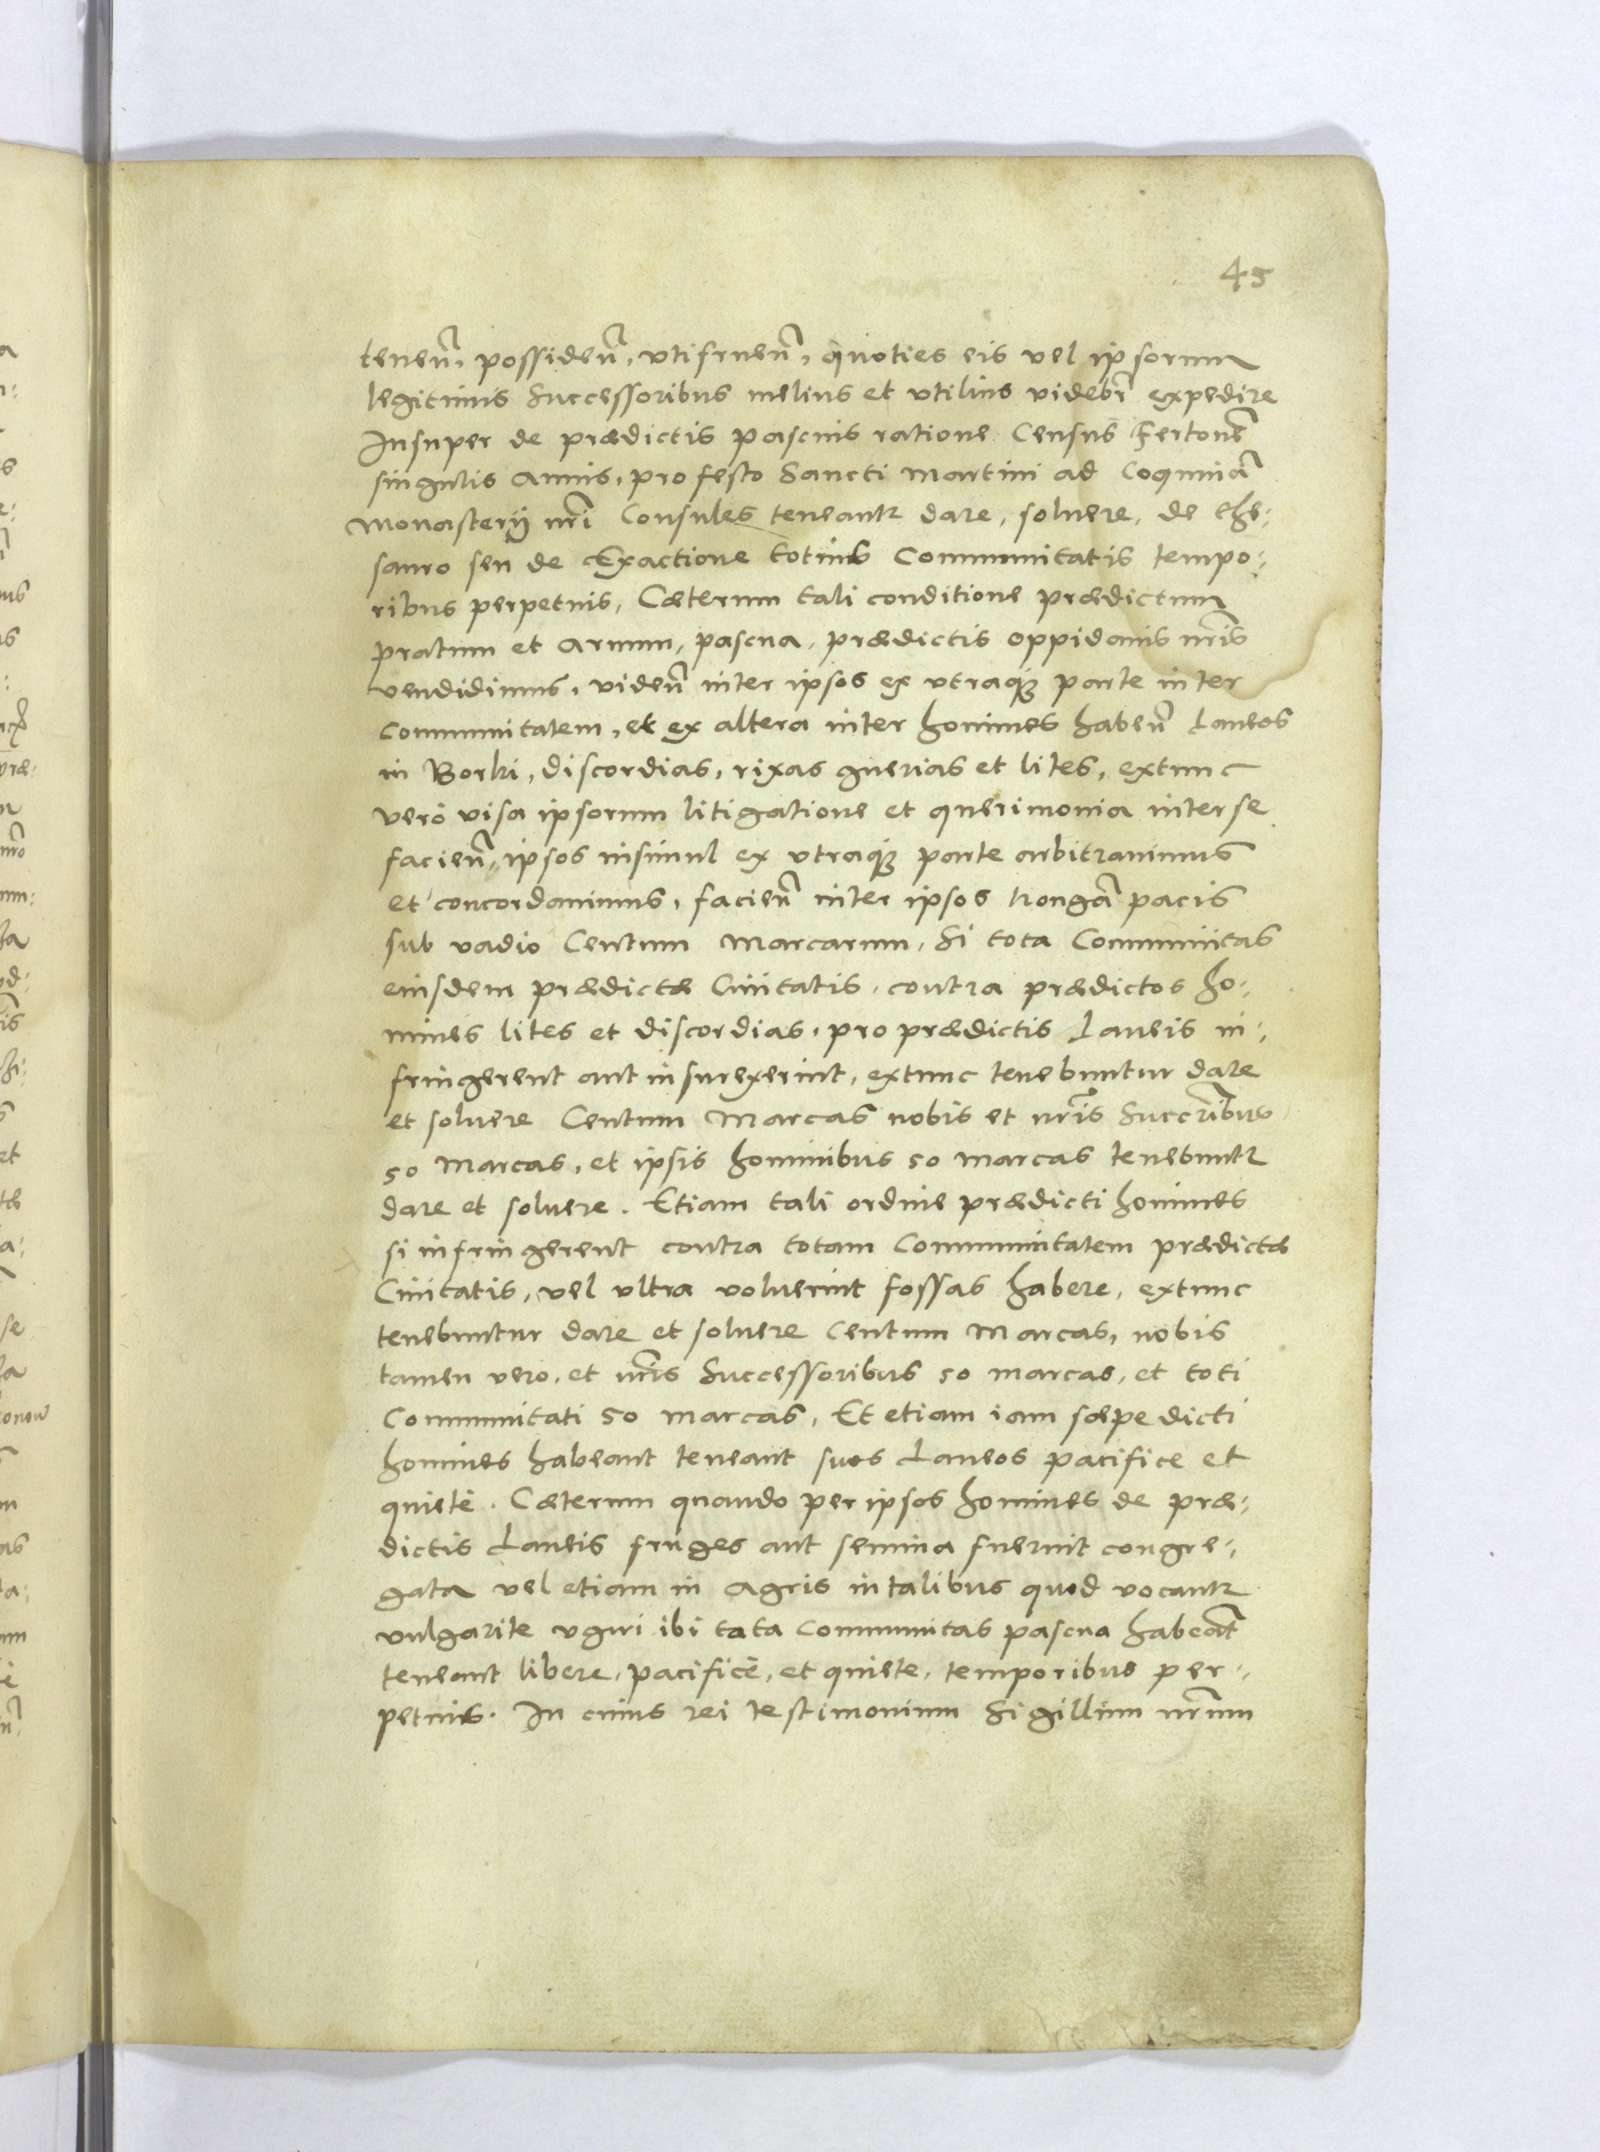 45
teneñ, possideñ, vtifrueñ, quoties eis vel ipsorum
legitimis Successoribus melius et vtilius videbr̃ expedire
Insuper de prædictis pascuis ratione Census Fertonẽ
singulis annis, pro festo Sancti Martini ad Coquinã
Monasterij nr̃i Consules teneantr dare, soluere, de the-
sauro seu de Exactione totius Communitatis tempo-
ribus perpetuis, Cæterum tali conditione prædictum
pratum et aruum, pascua, prædictis oppidanis nr̃is
vendidimus, videñ inter ipsos ex vtraq̃ parte inter
Communitatem, et ex altera inter homines habeñ Laneos
in Borki, discordias, rixas guerias et lites, extunc
vero visa ipsorum litigatione et querimonia inter se
facieñ, ipsos insimul ex vtraq̃ parte arbitrauimus
et concordauimus, facieñ inter ipsos trongã pacis
sub vadio Centum Marcarum, Si tota Communitas
eiusdem prædictæ Ciuitatis, contra prædictos ho-
mines lites et discordias, pro prædictis Laneis in-
fringerent aut insurexerint, extunc tenebuntur dare
et soluere Centum Marcas nobis et nr̃is Succr̃ibus
50 Marcas, et ipsis hominibus 50 marcas tenebuntr
dare et soluere. Etiam tali ordine prædicti homines
si infringerent contra totam Communitatem prædictæ
Ciuitatis, vel vltra voluerint fossas habere, extunc
tenebuntur dare et soluere Centum Marcas, nobis
tamen vero, et nr̃is Successoribus 50 marcas, et toti
Communitati 50 marcas, Et etiam iam sæpe dicti
homines habeant teneant suos Laneos pacifice et
quiete. Cæterum quando per ipsos homines de præ-
dictis Laneis fruges aut semina fuerint congre-
gata vel etiam in Agris in talibus quod vocantr
vulgarite vgwi ibi tata Communitas pascua habeãt
teneant libere, pacifice, et quiete, temporibus per-
petuis. In cuius rei testimonium Sigillum nr̃um